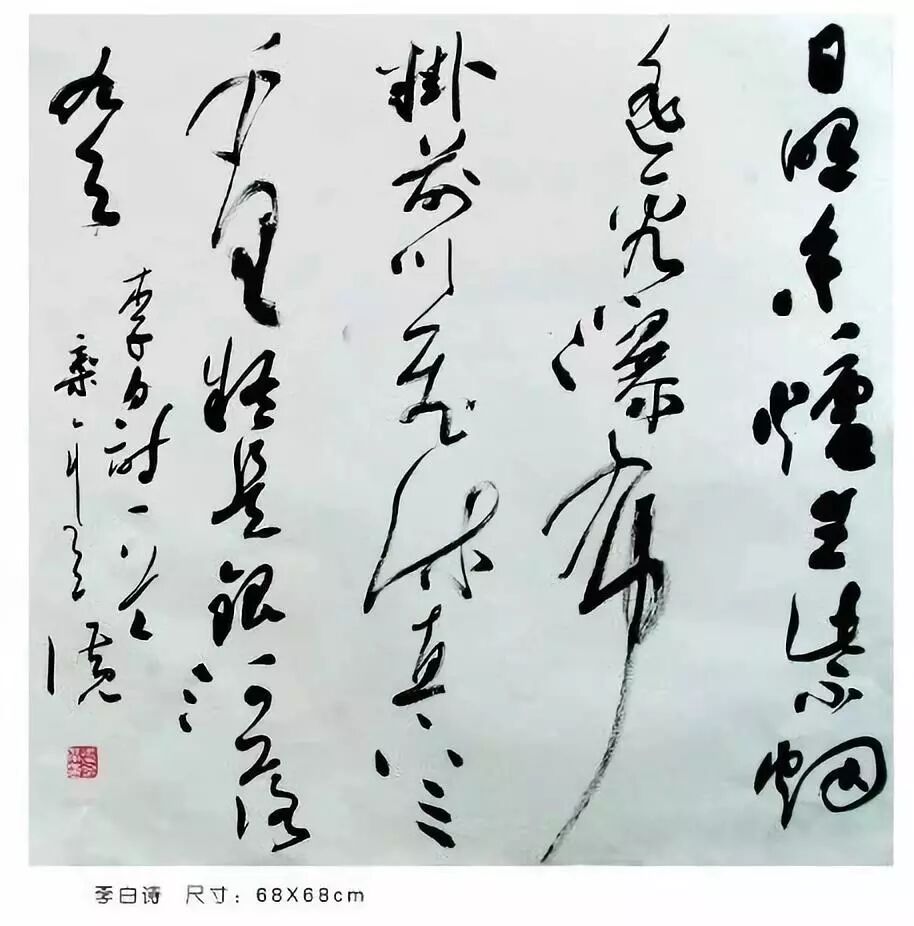 日照香炉生紫烟
遥看瀑布
掛前川飞流直下三
千里疑是银河落
九天
李白诗一首
李白诗 尺寸：68X68cm